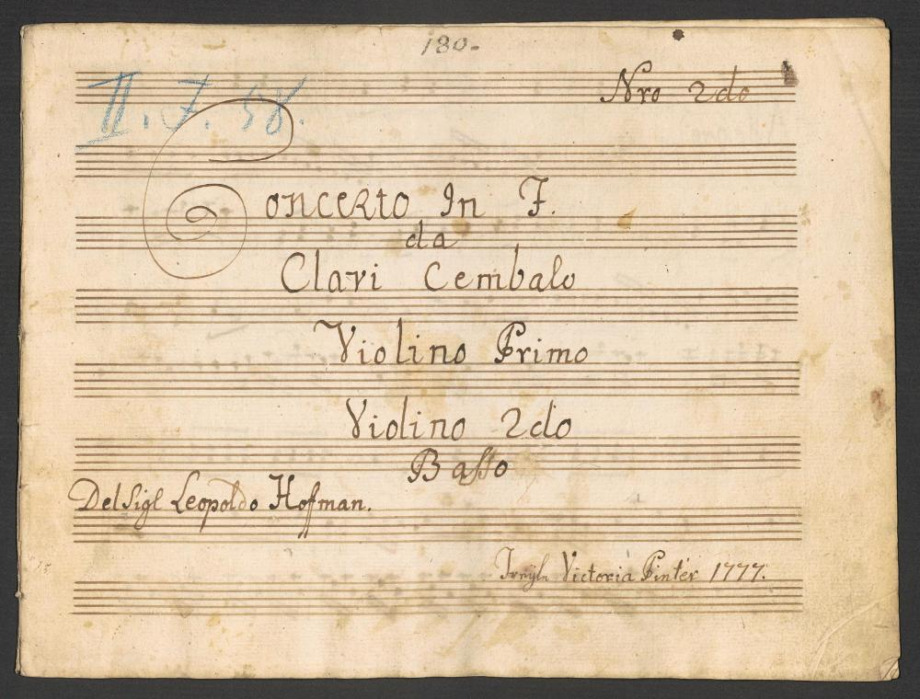 180.
II. F. 58.
Nro 2do
Concerto In F.
da
Clavi Cembalo
Violino Primo
Violino 2do
Baſſo
Del Sigl Leopoldo Hofman.
Victoria Pinter 1777.